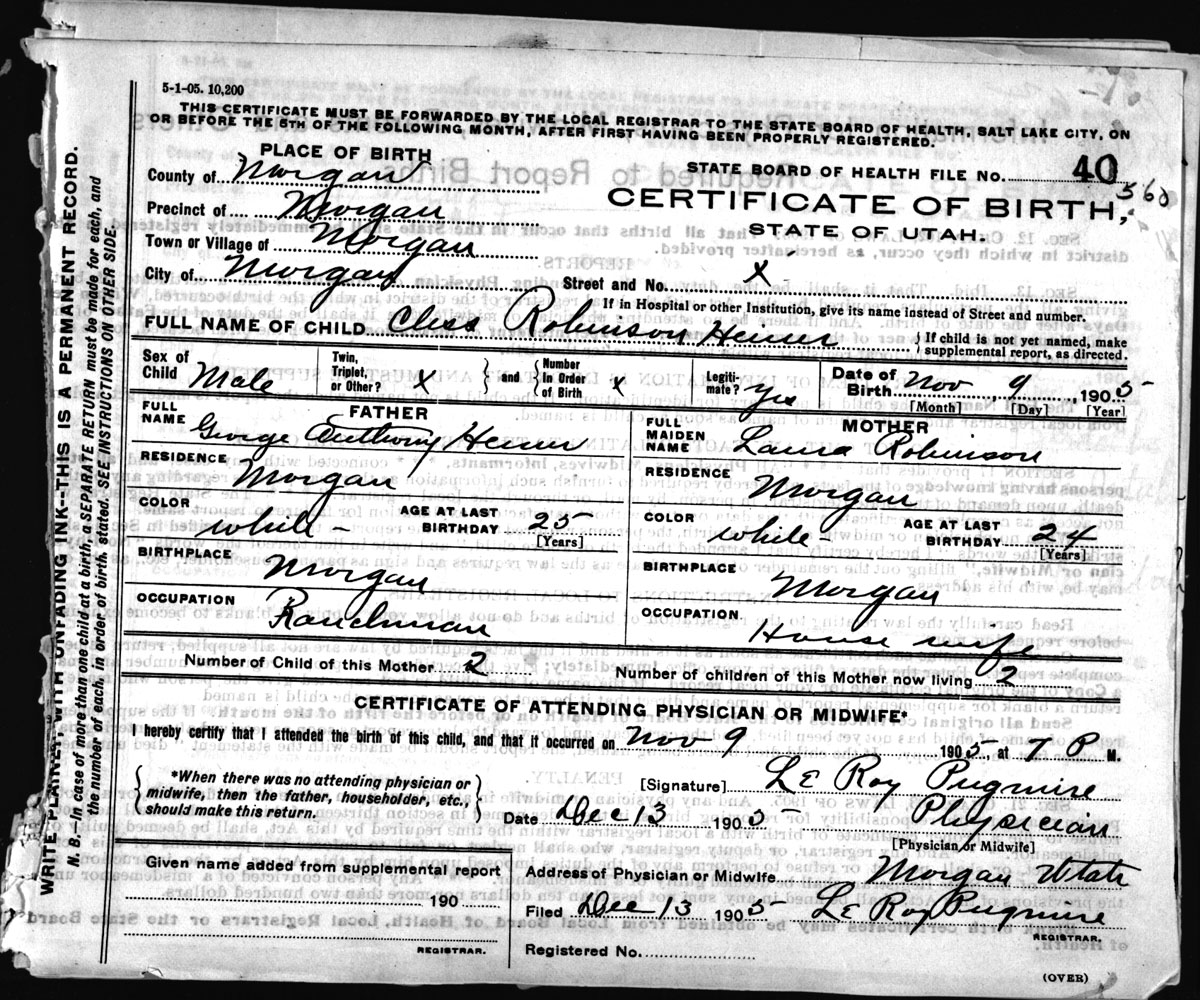 5-1-05. 10,200
THIS CERTIFICATE MUST BE FORWARDED BY THE LOCAL REGISTRAR TO THE STATE BOARD OF HEALTH, SALT LAKE CITY, ON
OR BEFORE THE 5TH OF THE FOLLOWING MONTH, AFTER FIRST HAVING BEEN PROPERLY REGISTERED.
PLACE OF BIRTH
County of Morgan
Precinct of Morgan
Town or Village of Morgan
City of Morgan
STATE BOARD OF HEALTH FILE NO. 40
560
CERTIFICATE OF BIRTH,
STATE OF UTAH.
Street and No. X
If in Hospital or other Institution, give its name instead of Street and number.
FULL NAME OF CHILD Robinson Heiner
If child is not yet named, make
supplemental report, as directed.
Sex of Child Male
Twin, Triplet, or Other? X
and Number In Order of Birth X
Legiti-mate? yes
Date of Birth Nov 9, 1905
[Month] [Day] [Year]
FATHER
FULL NAME George Anthony Heiner
RESIDENCE Morgan
COLOR White -
AGE AT LAST BIRTHDAY 25
[Years]
BIRTHPLACE Morgan
OCCUPATION Ranchman
MOTHER
FULL MAIDEN NAME Laura Robinson
RESIDENCE Morgan
COLOR White -
AGE AT LAST BIRTHDAY 24
[Years]
BIRTHPLACE Morgan
OCCUPATION House wife
Number of Child of this Mother 2
Number of children of this Mother now living 2
CERTIFICATE OF ATTENDING PHYSICIAN OR MIDWIFE*
I hereby certify that I attended the birth of this child, and that it occurred on Nov 9 1905, at 7 P M.
*When there was no attending physician or
midwife, then the father, householder, etc.,
should make this return.
[Signature] Le Roy Pugmire
Date Dec 13 1905 Physician
[Physician or Midwife]
Given name added from supplemental report
190
REGISTRAR.
Address of Physician or Midwife Morgan Utah
Filed Dec 13 1905 Le Roy Pugmire
REGISTRAR.
Registered No.
(OVER)
WRITE PLAINLY WITH UNFADING INK--THIS IS A PERMANENT RECORD.
N. B.--In case of more than one child at a birth, a SEPARATE RETURN must be made for each, and
the number of each, in order of birth, stated. SEE INSTRUCTIONS ON OTHER SIDE.